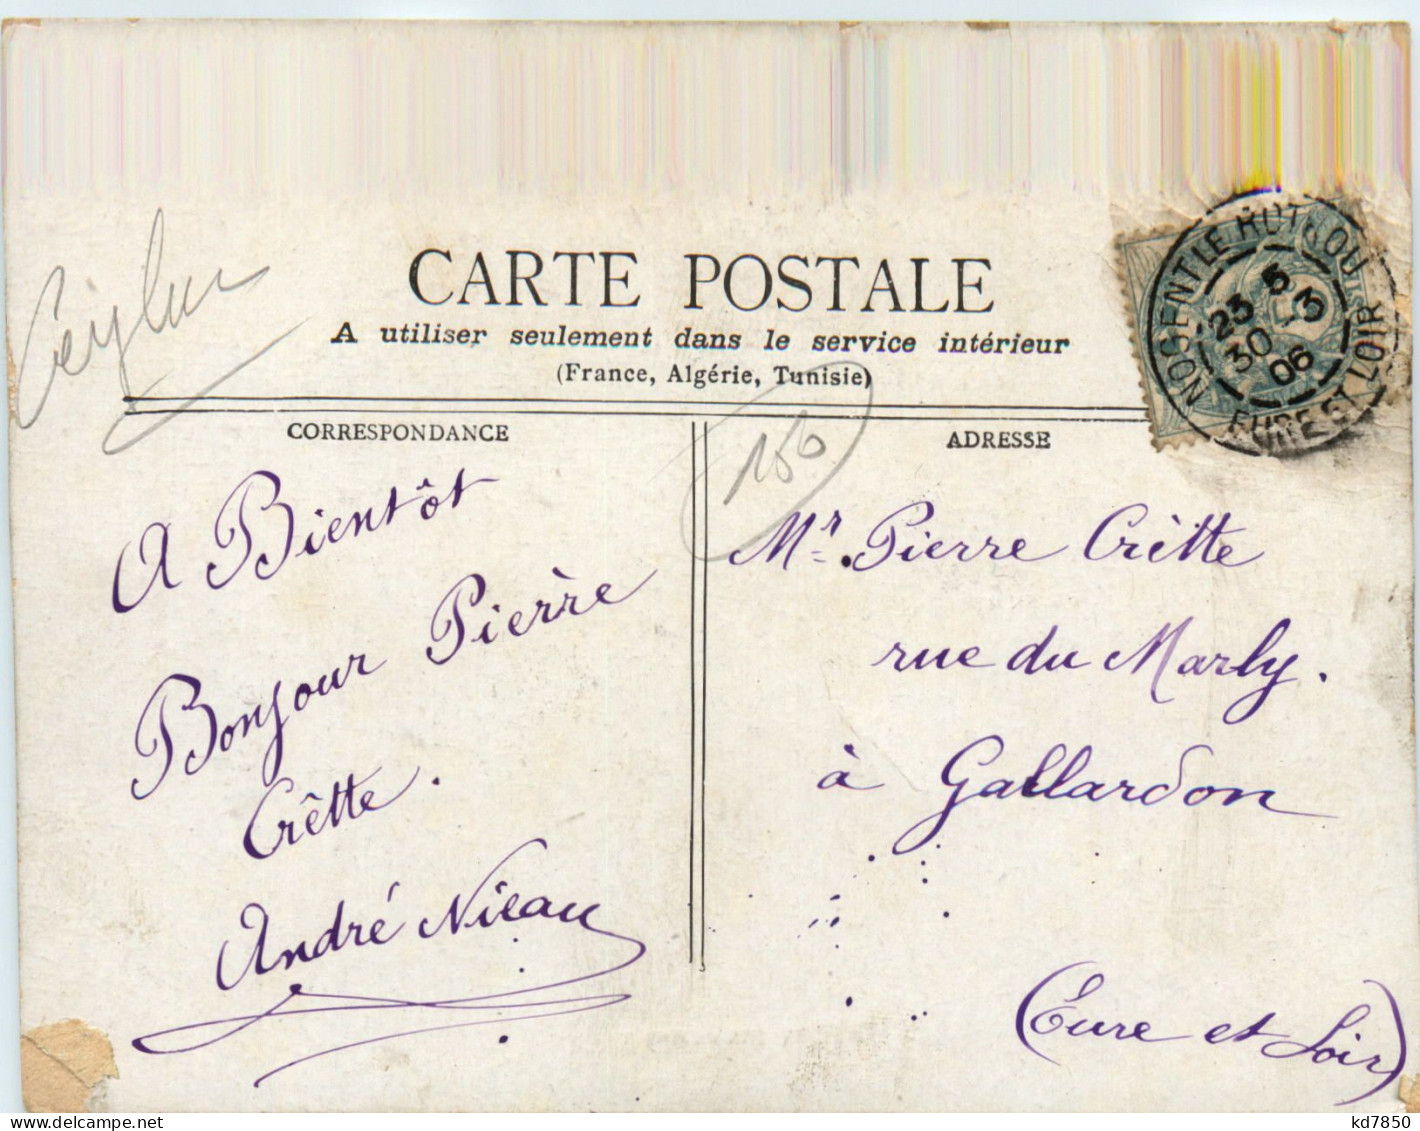 Ceylan
CARTE POSTALE
A utiliser seulement dans le service intérieur
(France, Algérie, Tunisie)
CORRESPONDANCE
A Bientôt
Bonjour Pierre
Crêtte.
André Nieau
150
ADRESSE
NOGENT LE ROTROU
5
23 - 3
30
06
EURE ET LOIR
Mr. Pierre Crêtte
rue du Marly.
à Gallardon
(Eure et Loir)
delcampe.net
kd7850